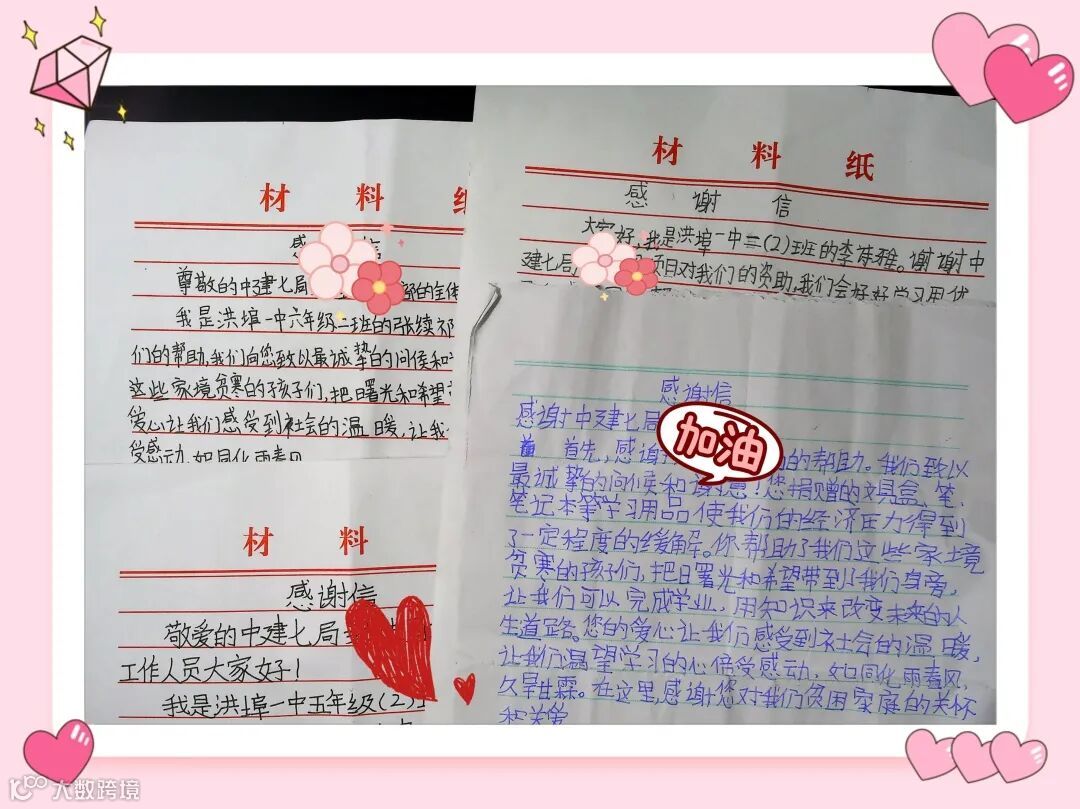 材 料
感 信
尊敬的中建七局 部的全体
我是洪埠一中六年级二班的张续祁
们的帮助,我们向您致以最诚挚的问候和
这些家境贫寒的孩子们,把曙光和希望
爱心让我们感受到社会的温暖,让我
受感动,如同化雨春风
材 料 纸
感 谢 信
大家好,我是洪埠一中三(2)班的李 雅。谢谢中
建七局 项目对我们的资助,我们会好好学习,用优
感谢信
感谢中建七局
首先,感谢 的帮助。我们致以
最诚挚的问候和谢意!您捐赠的文具盒、笔、
笔记本等学习用品使我们的经济压力得到
了一定程度的缓解。你帮助了我们这些家境
贫寒的孩子们,把曙光和希望带到我们身旁,
让我们可以完成学业,用知识来改变未来的人
生道路。您的爱心让我们感受到社会的温暖,
让我们渴望学习的心倍受感动,如同化雨春风,
久旱甘霖。在这里感谢您对我们贫困家庭的关怀
和关爱
加油
材 料
感谢信
敬爱的中建七局
工作人员大家好!
我是洪埠一中五年级(2)
大数跨境